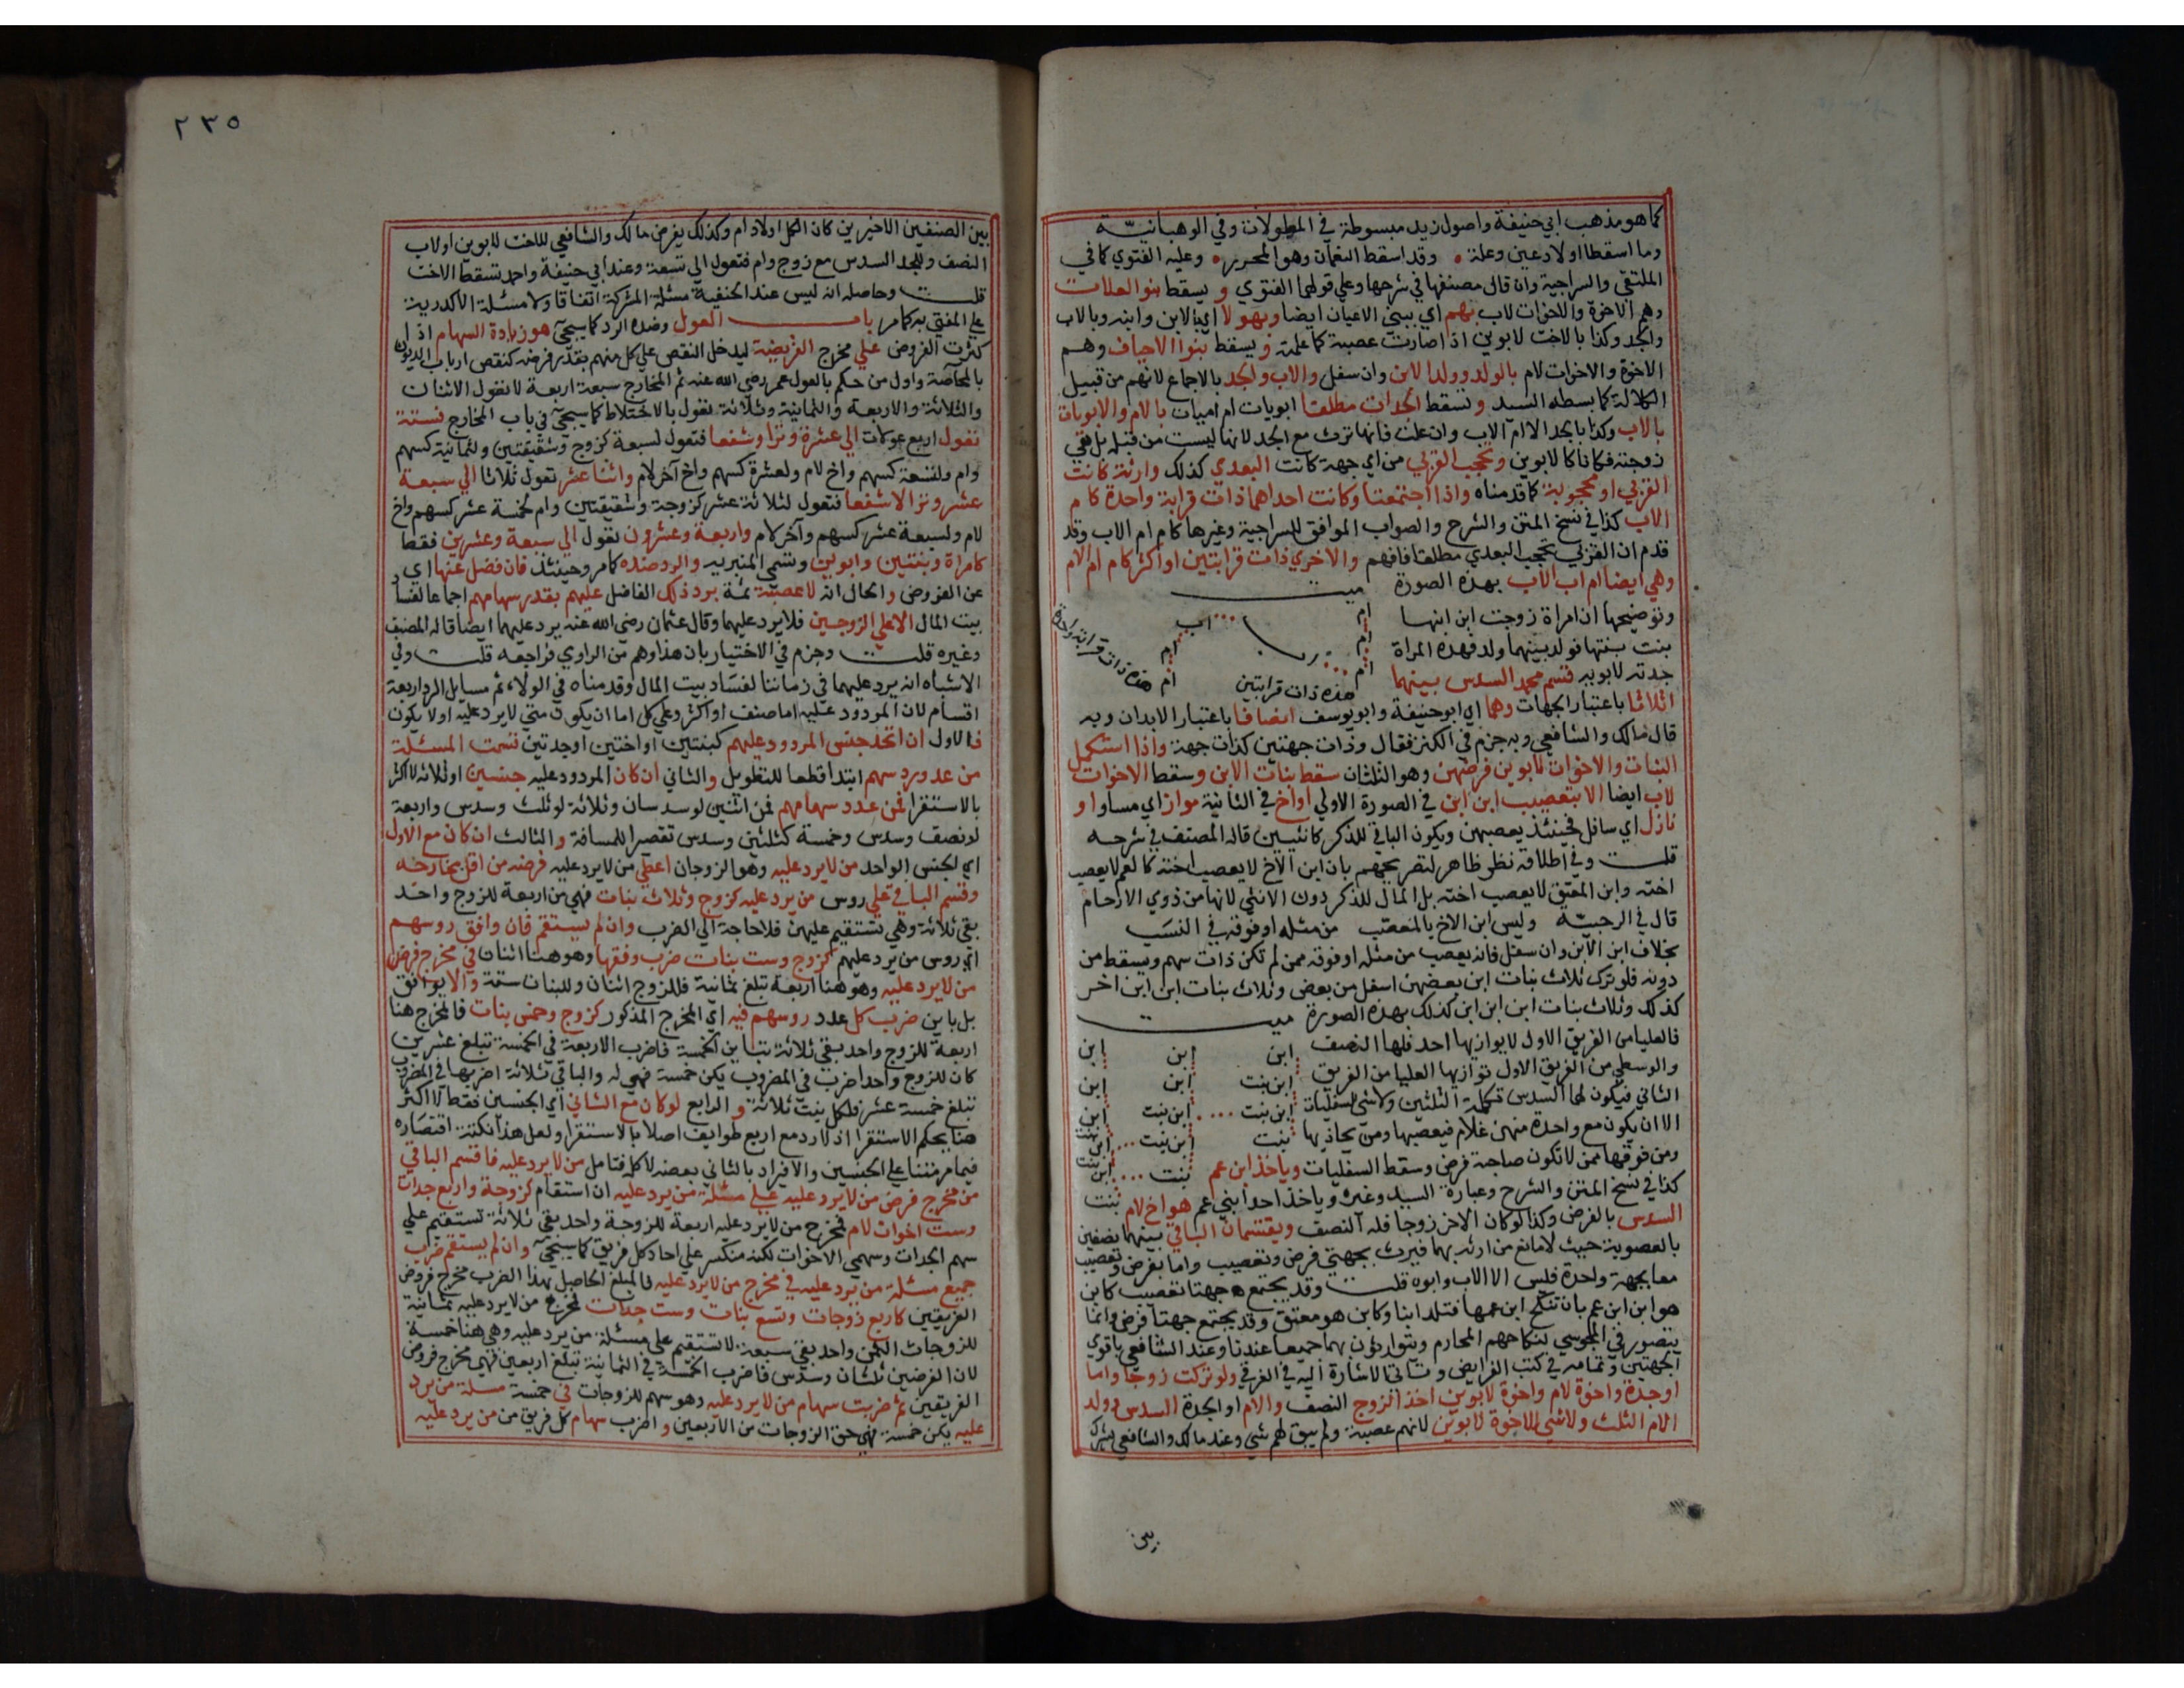 كما هو مذهب ابي حنيفة واصول زيد مبسوطة في المطولات وفي الوهبانيّة
وما اسقطا اولاد عين وعلة • وقد اسقط النعمان وهو المحرر • وعليه الفتوي كما في
الملتقى والسراجية وان قال مصنفها في شرحها وعلي قولهما الفتوي ويسقط بنوا العلات
وهم الاخوة والاخوات لاب بهم اي ببني الاعيان ايضا وبهولا اي بالابن وابنه وبالاب
والجد وكذا بالاخت لابوين اذا صارت عصبة كما علمة ويسقط بنوا الاخياف وهم
الاخوة والاخوات لام بالولد وولد الابن وان سفل والاب والجد بالاجماع لانهم من قبيل
الكلالة كما بسطه السيد وتسقط الجدات مطلقا ابويات ام اميات بالام والابويات
بالاب وكذا بالجد الا ام الاب وان علت فانها ترث مع الجد لانها ليست من قبله بل هي
زوجته فكانا كالابوين وتحجب القربي من اي جهة كانت البعدي كذلك وارثة كانت
القربي او محجوبة كما قدمناه واذا اجتمعتا وكانت احداهما ذات قرابة واحدة كام
الاب كذا في نسخ المتن والشرح والصواب الموافق للسراجية وغيرها كام ام الاب وقد
قدم ان القربي تحجب البعدي مطلقا فافهم والاخري ذات قرابتين او اكثر كام ام الام
وهي ايضا ام اب الاب بهذه الصورة ميت
وتوضيحها ان امراة زوجت ابن ابنها
بنت بنتها فولد بينهما ولد فهذه المراة
جدته لابويه قسم محمد السدس بينهما
ام اب
ام ام
ام ام
هذه ذات قرابتين
هذه ذات قرابة واحدة
اثلاثا باعتبار الجهات وهما اي ابو حنيفة وابو يوسف انصافا باعتبار الابدان وبه
قال مالك والشافعي وبه جزم في الكنز فقال وذات جهتين كذات جهة واذا استكمل
البنات والاخوات لابوين فرضهن وهو الثلثان سقط بنات الابن وسقط الاخوات
لاب ايضا الا بتعصيب ابن ابن في الصورة الاولي او اخ في الثانية مواز اي مساو او
نازل اي سافل فحينئذ يعصبهن ويكون الباقي للذكر كانثيين قاله المصنف في شرحه
قلت وفي اطلاقه نظر ظاهر لتصريحهم بان ابن الاخ لا يعصب اخته كالعم لا يعصب
اخته وابن المعتق لا يعصب اخته بل المال للذكر دون الانثي لانها من ذوي الارحام
قال في الرحبيّة وليس ابن الاخ بالمعصب من مثله او فوقه في النسب
بخلاف ابن الابن وان سفل فانه يعصب من مثله او فوقه ممن لم تكن ذات سهم ويسقط من
دونه فلو ترك ثلاث بنات ابن بعضهن اسفل من بعض وثلاث بنات ابن ابن اخر
كذلك وثلاث بنات ابن ابن ابن كذلك بهذه الصورة ميت
فالعليا من الفريق الاول لا يوازيها احد فلها النصف ابن ابن ابن
والوسطي من الفريق الاول توازيها العليا من الفريق ابن بنت ابن ابن
الثاني فيكون لهما السدس تكملة الثلثين ولا شي للسفليات ابن بنت ابن بنت ابن
الا ان يكون مع واحدة منهن غلام فيعصبها ومن يحاذيها بنت ابن بنت ابن بنت
ومن فوقها ممن لا تكون صاحبة فرض وسقط السفليات وياخذ ابن عم بنت ابن بنت
كذا في نسخ المتن والشرح وعبارة السيد وغيره وياخذ احد ابني عم هو اخ لام بنت
السدس بالفرض وكذا لو كان الاخر زوجا فله النصف ويقتسمان الباقي بينهما نصفين
بالعصوبة حيث لا مانع من ارثه بهما فيرث بجهتي فرض وتعصيب واما بفرض وتعصيب
معا بجهة واحدة فليس الا الاب وابوه قلت وقد يجتمع جهتا تعصيب كابن
هو ابن ابن عم بان تنكح ابن عمها فتلد ابنا وكابن هو معتق وقد يجتمع جهتا فرض وانما
يتصور في المجوسي بنكاحهم المحارم ويتوارثون بهما جميعا عندنا وعند الشافعي باقوي
الجهتين وتمامه في كتب الفرايض وستاتي الاشارة اليه في الغرقي ولو تركت زوجا واما
او جدة واخوة لام واخوة لابوين اخذ الزوج النصف والام او الجدة السدس وولد
الام الثلث ولا شي للاخوة لابوين لانهم عصبة ولم يبق لهم شي وعند مالك والشافعي يشرك
بين
٢٣٥
بين الصنفين الاخيرين كان الكل اولاد ام وكذلك يفرض مالك والشافعي للاخت لابوين او لاب
النصف وللجد السدس مع زوج وام فتعول الي تسعة وعند ابي حنيفة واحمد تسقط الاخت
قلت وحاصله انه ليس عند الحنفية مسئلة المشركة اتفاقا ولا مسئلة الاكدرية
علي المفتي به كما مر باب العول وضده الرد كما سيجئ هو زيادة السهام اذا
كثرت الفروض علي مخرج الفريضة ليدخل النقص علي كل منهم بقدر فرضه كنقص ارباب الديون
بالمحاصّة واول من حكم بالعول عمر رضي الله عنه ثم المخارج سبعة اربعة لا تعول الاثنان
والثلاثة والاربعة والثمانية وثلاثة تعول بالاختلاط كما سيجئ في باب المخارج فستة
تعول اربع عولات الي عشرة وترا وشفعا فتعول لسبعة كزوج وشقيقتين ولثمانية كهم
وام ولتسعة كهم واخ لام ولعشرة كهم واخ آخر لام واثنا عشر تعول ثلاثا الي سبعة
عشر وترا لا شفعا فتعول لثلاثة عشر كزوجة وشقيقتين وام لخمسة عشر كهم واخ
لام ولسبعة عشر كهم وآخر لام واربعة وعشرون تعول الي سبعة وعشرين فقط
كامراة وبنتين وابوين وتسمي المنبريه والرد ضده كما مر وحينئذ فان فضل عنها اي
عن الفروض والحال انه لا عصبة ثمة يرد ذلك الفاضل عليهم بقدر سهامهم اجماعا لفساد
بيت المال الا علي الزوجين فلا يرد عليهما وقال عثمان رضي الله عنه يرد عليهما ايضا قاله المصنف
وغيره قلت وجزم في الاختيار بان هذا وهم من الراوي فراجعه قلت وفي
الاشباه انه يرد عليهما في زماننا لفساد بيت المال وقدمناه في الولاء ثم مسايل الرد اربعة
اقسام لان المردود عليه اما صنف او اكثر وعلي كل اما ان يكون متي لا يرد عليه او لا يكون
فالاول ان اتحد جنس المردود عليهم كبنتين او اختين او جدتين قسمت المسئلة
من عدد روسهم ابتدا قطعا للتطويل والثاني ان كان المردود عليه جنسين او ثلاثة لا اكثر
بالاستقرا فمن عدد سهامهم فمن اثنين لو سدسان وثلاثة لو ثلث وسدس واربعة
لو نصف وسدس وخمسة كثلثين وسدس تقصيرا للمسافة والثالث ان كان مع الاول
اي الجنس الواحد من لا يرد عليه وهو الزوجان اعطي من لا يرد عليه فرضه من اقل مخارجه
وقسم الباقي علي روس من يرد عليه كزوج وثلاث بنات فهي من اربعة للزوج واحد
بقي ثلاثة وهي تستقيم عليهن فلا حاجة الي الضرب وان لم يستقم فان وافق روسهم
اي روس من يرد عليهم كزوج وست بنات ضرب وفقها وهو هنا اثنان في مخرج فرض
من لا يرد عليه وهو هنا اربعة تبلغ ثمانية فللزوج اثنان وللبنات ستة والا يوافق
بل باين ضرب كل عدد روسهم فيه اي المخرج المذكور كزوج وخمس بنات فالمخرج هنا
اربعة للزوج واحد بقي ثلاثة تباين الخمسة فاضرب الاربعة في الخمسة تبلغ عشرين
كان للزوج واحد اضرب في المضروب يكن خمسة فهي له والباقي ثلاثة اضربها في المضروب
تبلغ خمسة عشر فلكل بنت ثلاثة والرابع لو كان مع الثاني اي الجنسين فقط لا اكثر
هنا بحكم الاستقرا اذ لا رد مع اربع طوايف اصلا بالاستقرا ولعل هذا نكتة اقتصاره
فيما مر متنا علي الجنسين والافراد بالثاني بعضه لا كله فتامل من لا يرد عليه فاقسم الباقي
من مخرج فرض من لا يرد عليه علي مسئلة من يرد عليه ان استقام كزوجة واربع جدات
وست اخوات لام فمخرج من لا يرد عليه اربعة للزوجة واحد بقي ثلاثة تستقيم علي
سهم الجدات وسهمي الاخوات لكنه منكسر علي احاد كل فريق كما سيجئ وان لم يستقم ضرب
جميع مسئلة من يرد عليه في مخرج من لا يرد عليه فالمبلغ الحاصل بهذا الضرب مخرج فروض
الفريقين كاربع زوجات وتسع بنات وست جدات فمخرج من لا يرد عليه ثمانية
للزوجات الثمن واحد بقي سبعة لا تستقيم علي مسئلة من يرد عليه وهي هنا خمسة
لان الفرضين ثلثان وسدس فاضرب الخمسة في الثمانية تبلغ اربعين فهي مخرج فروض
الفريقين ثم ضربت سهام من لا يرد عليه وهو سهم للزوجات في خمسة مسئلة من يرد
عليه يكن خمسة فهي حق الزوجات من الاربعين واضرب سهام كل فريق من من يرد عليه